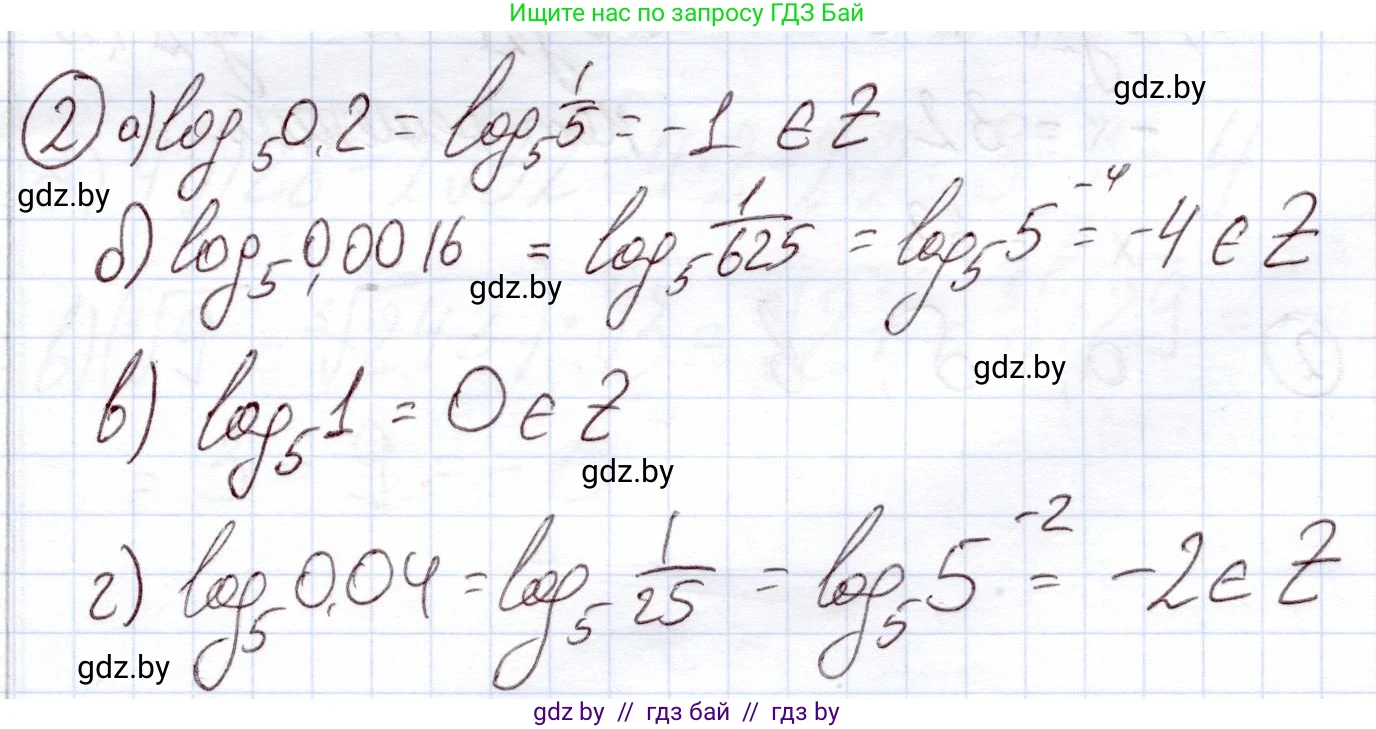 Ищите нас по запросу ГДЗ Бай
gdz.by
2 а) log₅0,2 = log₅ 1/5 = -1 ∈ Z
gdz.by
б) log₅0,0016 = log₅ 1/625 = log₅5⁻⁴ = -4 ∈ Z
gdz.by
gdz.by
в) log₅1 = 0 ∈ Z
gdz.by
г) log₅0,04 = log₅ 1/25 = log₅5⁻² = -2 ∈ Z
gdz.by
gdz by // гдз бай // гдз by